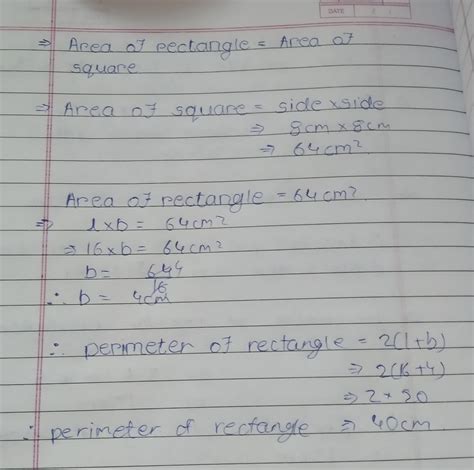 DATE
⇒ Area of rectangle = Area of
square
⇒ Area of square = side × side
⇒ 8cm × 8cm
⇒ 64cm²
Area of rectangle = 64cm²
⇒ l × b = 64cm²
⇒ 16 × b = 64cm²
b = 64 4
16
∴ b = 4cm
∴ perimeter of rectangle = 2(l+b)
⇒ 2(16+4)
⇒ 2 × 20
∴ perimeter of rectangle ⇒ 40cm